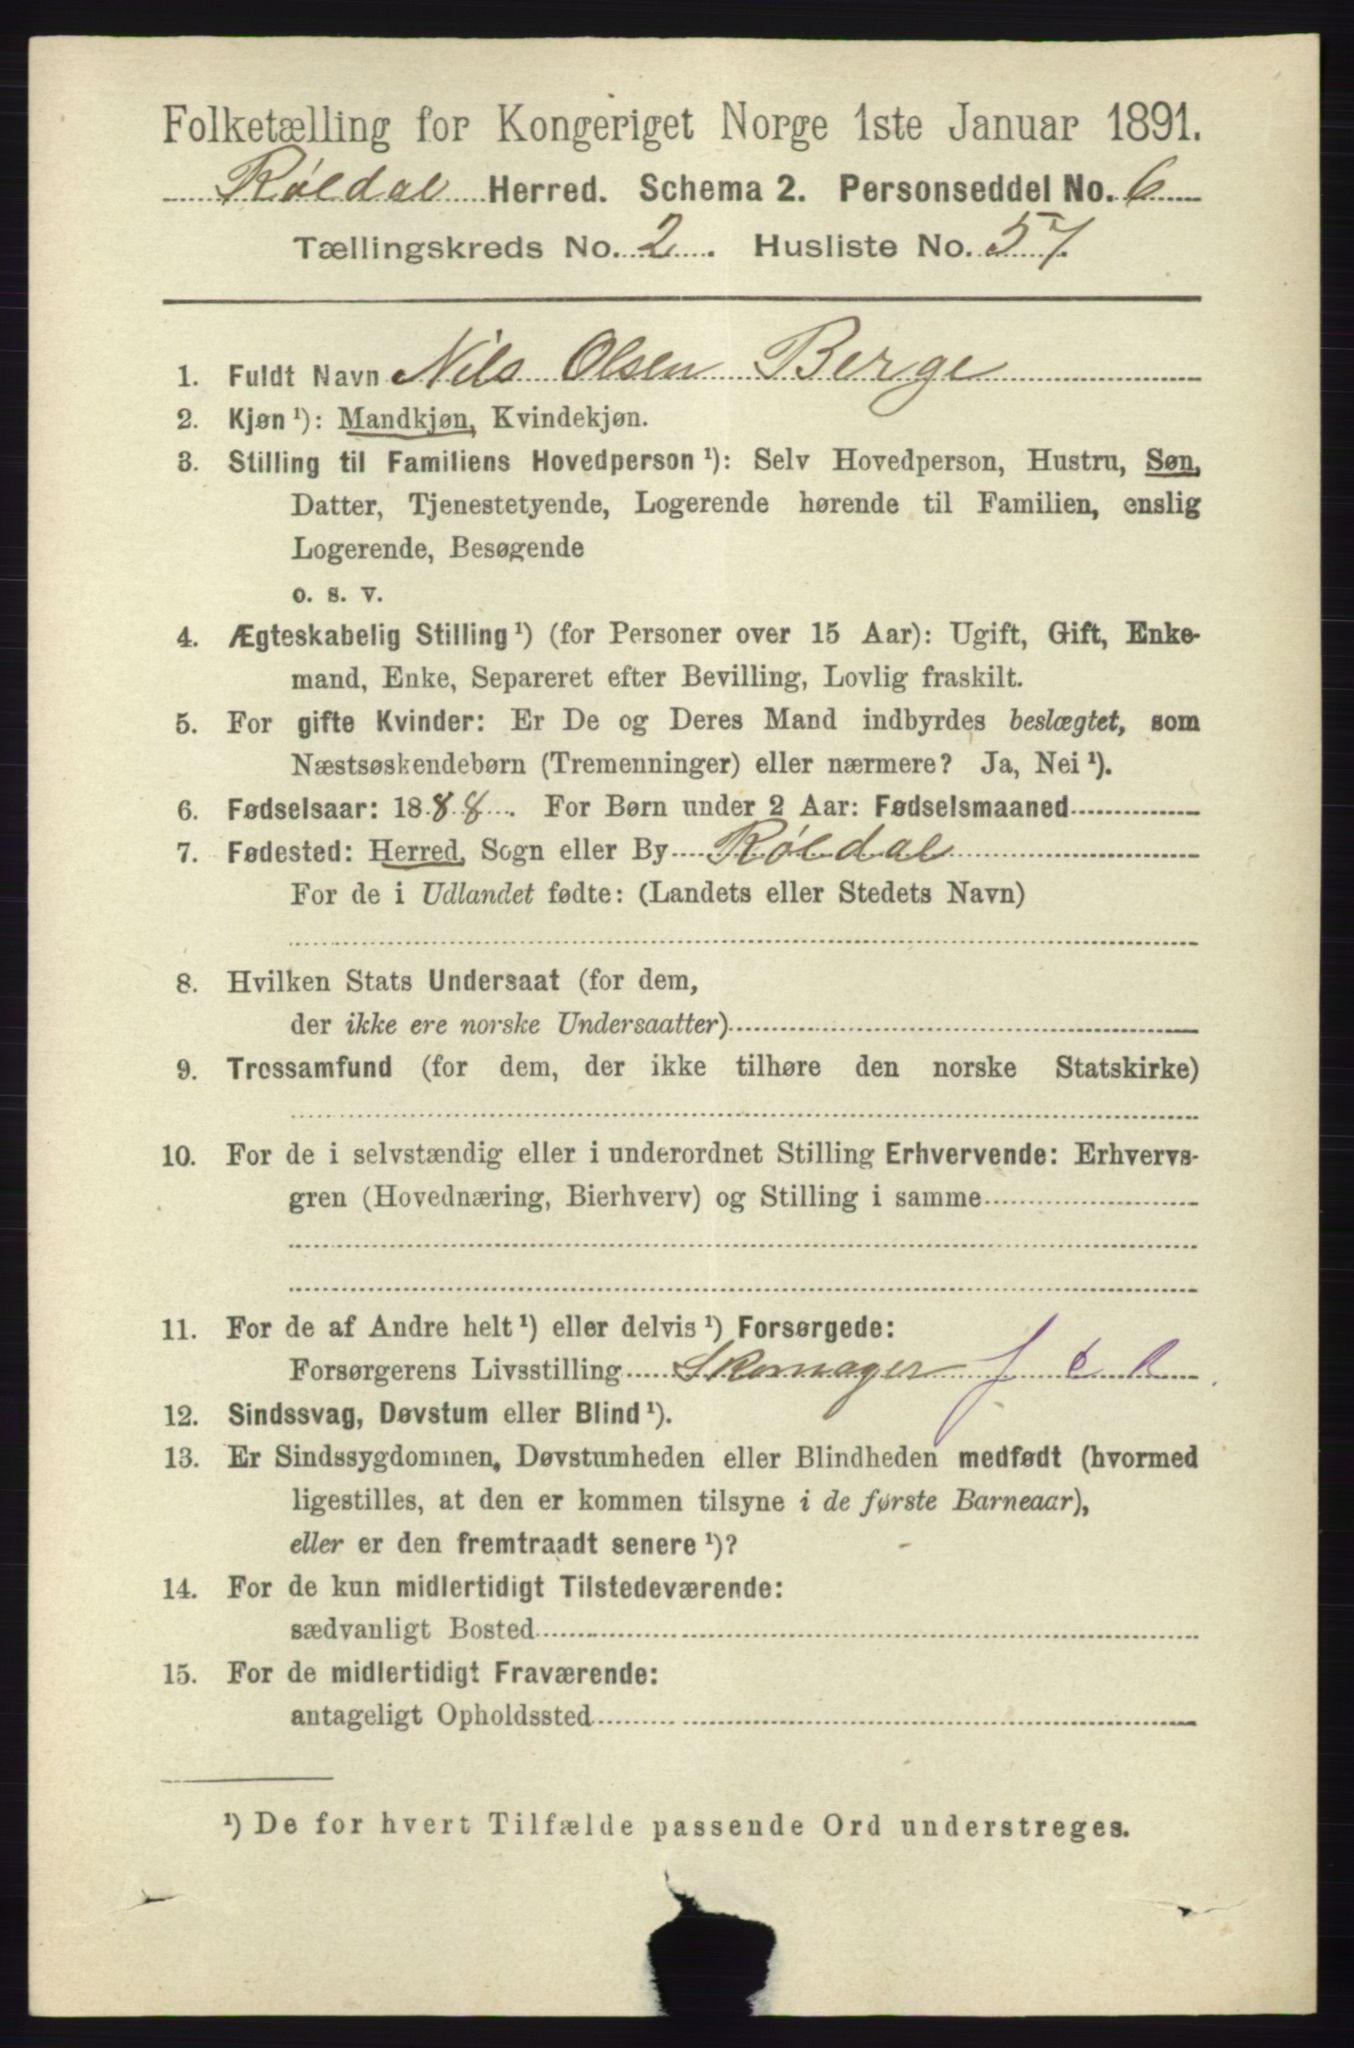 Folketælling for Kongeriget Norge 1ste Januar 1891.
Røldal Herred. Schema 2. Personseddel No. 6
Tællingskreds No. 2. Husliste No. 57.
1. Fuldt Navn Nils Olsen Berge
2. Kjøn ¹): Mandkjøn, Kvindekjøn.
3. Stilling til Familiens Hovedperson ¹): Selv Hovedperson, Hustru, Søn,
Datter, Tjenestetyende, Logerende hørende til Familien, enslig
Logerende, Besøgende
o. s. v.
4. Ægteskabelig Stilling ¹) (for Personer over 15 Aar): Ugift, Gift, Enke-
mand, Enke, Separeret efter Bevilling, Lovlig fraskilt.
5. For gifte Kvinder: Er De og Deres Mand indbyrdes beslægtet, som
Næstsøskendebørn (Tremenninger) eller nærmere? Ja, Nei ¹).
6. Fødselsaar: 1888. For Børn under 2 Aar: Fødselsmaaned
7. Fødested: Herred, Sogn eller By Røldal
For de i Udlandet fødte: (Landets eller Stedets Navn)
8. Hvilken Stats Undersaat (for dem,
der ikke ere norske Undersaatter)
9. Trossamfund (for dem, der ikke tilhøre den norske Statskirke)
10. For de i selvstændig eller i underordnet Stilling Erhvervende: Erhvervs-
gren (Hovednæring, Bierhverv) og Stilling i samme
11. For de af Andre helt ¹) eller delvis ¹) Forsørgede:
Forsørgerens Livsstilling Skomager
12. Sindssvag, Døvstum eller Blind ¹).
13. Er Sindssygdommen, Døvstumheden eller Blindheden medfødt (hvormed
ligestilles, at den er kommen tilsyne i de første Barneaar),
eller er den fremtraadt senere ¹)?
14. For de kun midlertidigt Tilstedeværende:
sædvanligt Bosted
15. For de midlertidigt Fraværende:
antageligt Opholdssted
¹) De for hvert Tilfælde passende Ord understreges.